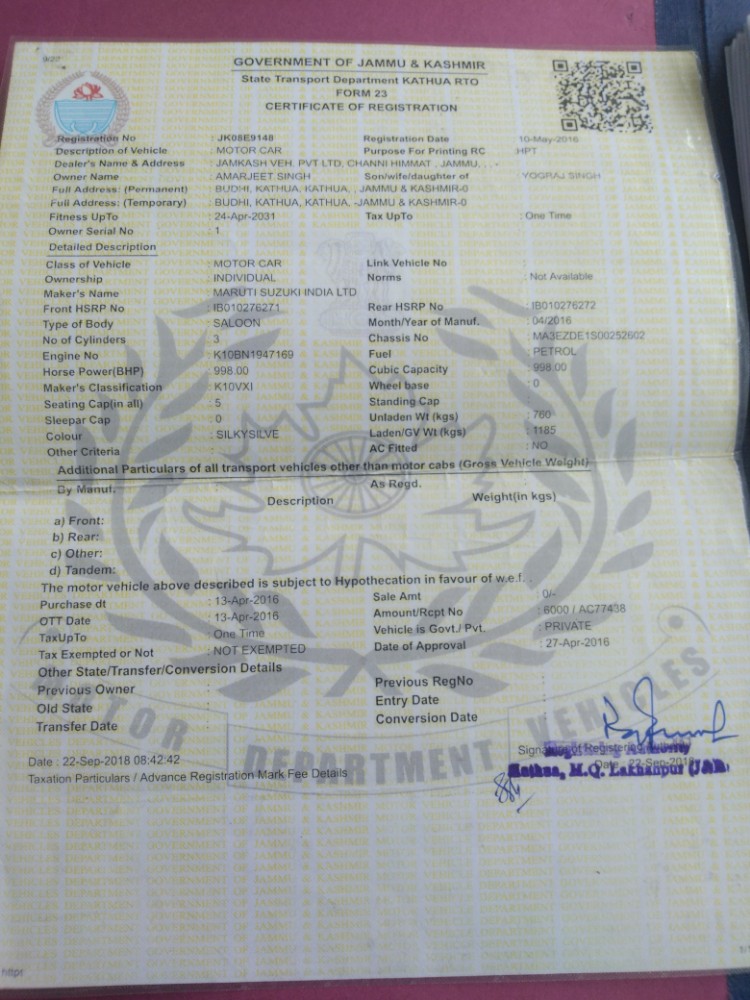 GOVERNMENT OF JAMMU & KASHMIR
State Transport Department KATHUA RTO
FORM 23
CERTIFICATE OF REGISTRATION
Registration No : JK08E9148 Registration Date : 10-May-2016
Description of Vehicle : MOTOR CAR Purpose For Printing RC : HPT
Dealer's Name & Address : JAMKASH VEH. PVT LTD, CHANNI HIMMAT , JAMMU, , -
Owner Name : AMARJEET SINGH Son/wife/daughter of : YOGRAJ SINGH
Full Address: (Permanent) : BUDHI, KATHUA, KATHUA, , JAMMU & KASHMIR-0
Full Address: (Temporary) : BUDHI, KATHUA, KATHUA, -JAMMU & KASHMIR-0
Fitness UpTo : 24-Apr-2031 Tax UpTo : One Time
Owner Serial No : 1
Detailed Description
Class of Vehicle : MOTOR CAR Link Vehicle No :
Ownership : INDIVIDUAL Norms : Not Available
Maker's Name : MARUTI SUZUKI INDIA LTD
Front HSRP No : IB010276271 Rear HSRP No : IB010276272
Type of Body : SALOON Month/Year of Manuf. : 04/2016
No of Cylinders : 3 Chassis No : MA3EZDE1S00252602
Engine No : K10BN1947169 Fuel : PETROL
Horse Power(BHP) : 998.00 Cubic Capacity : 998.00
Maker's Classification : K10VXI Wheel base : 0
Seating Cap(in all) : 5 Standing Cap :
Sleepar Cap : 0 Unladen Wt (kgs) : 760
Colour : SILKYSILVE Laden/GV Wt (kgs) : 1185
Other Criteria : AC Fitted : NO
Additional Particulars of all transport vehicles other than motor cabs (Gross Vehicle Weight)
By Manuf. : As Regd.
Description Weight(in kgs)
a) Front:
b) Rear:
c) Other:
d) Tandem:
The motor vehicle above described is subject to Hypothecation in favour of w.e.f. .
Purchase dt : 13-Apr-2016 Sale Amt : 0/-
OTT Date : 13-Apr-2016 Amount/Rcpt No : 6000 / AC77438
TaxUpTo : One Time Vehicle is Govt./ Pvt. : PRIVATE
Tax Exempted or Not : NOT EXEMPTED Date of Approval : 27-Apr-2016
Other State/Transfer/Conversion Details
Previous Owner : Previous RegNo :
Old State : Entry Date :
Transfer Date : Conversion Date :
MOTOR VEHICLES DEPARTMENT
Date : 22-Sep-2018 08:42:42 Signature of Registering Authority
Date : 22-Sep-2018
Kathua, H.Q. Lakhanpur (J&K)
Taxation Particulars / Advance Registration Mark Fee Details